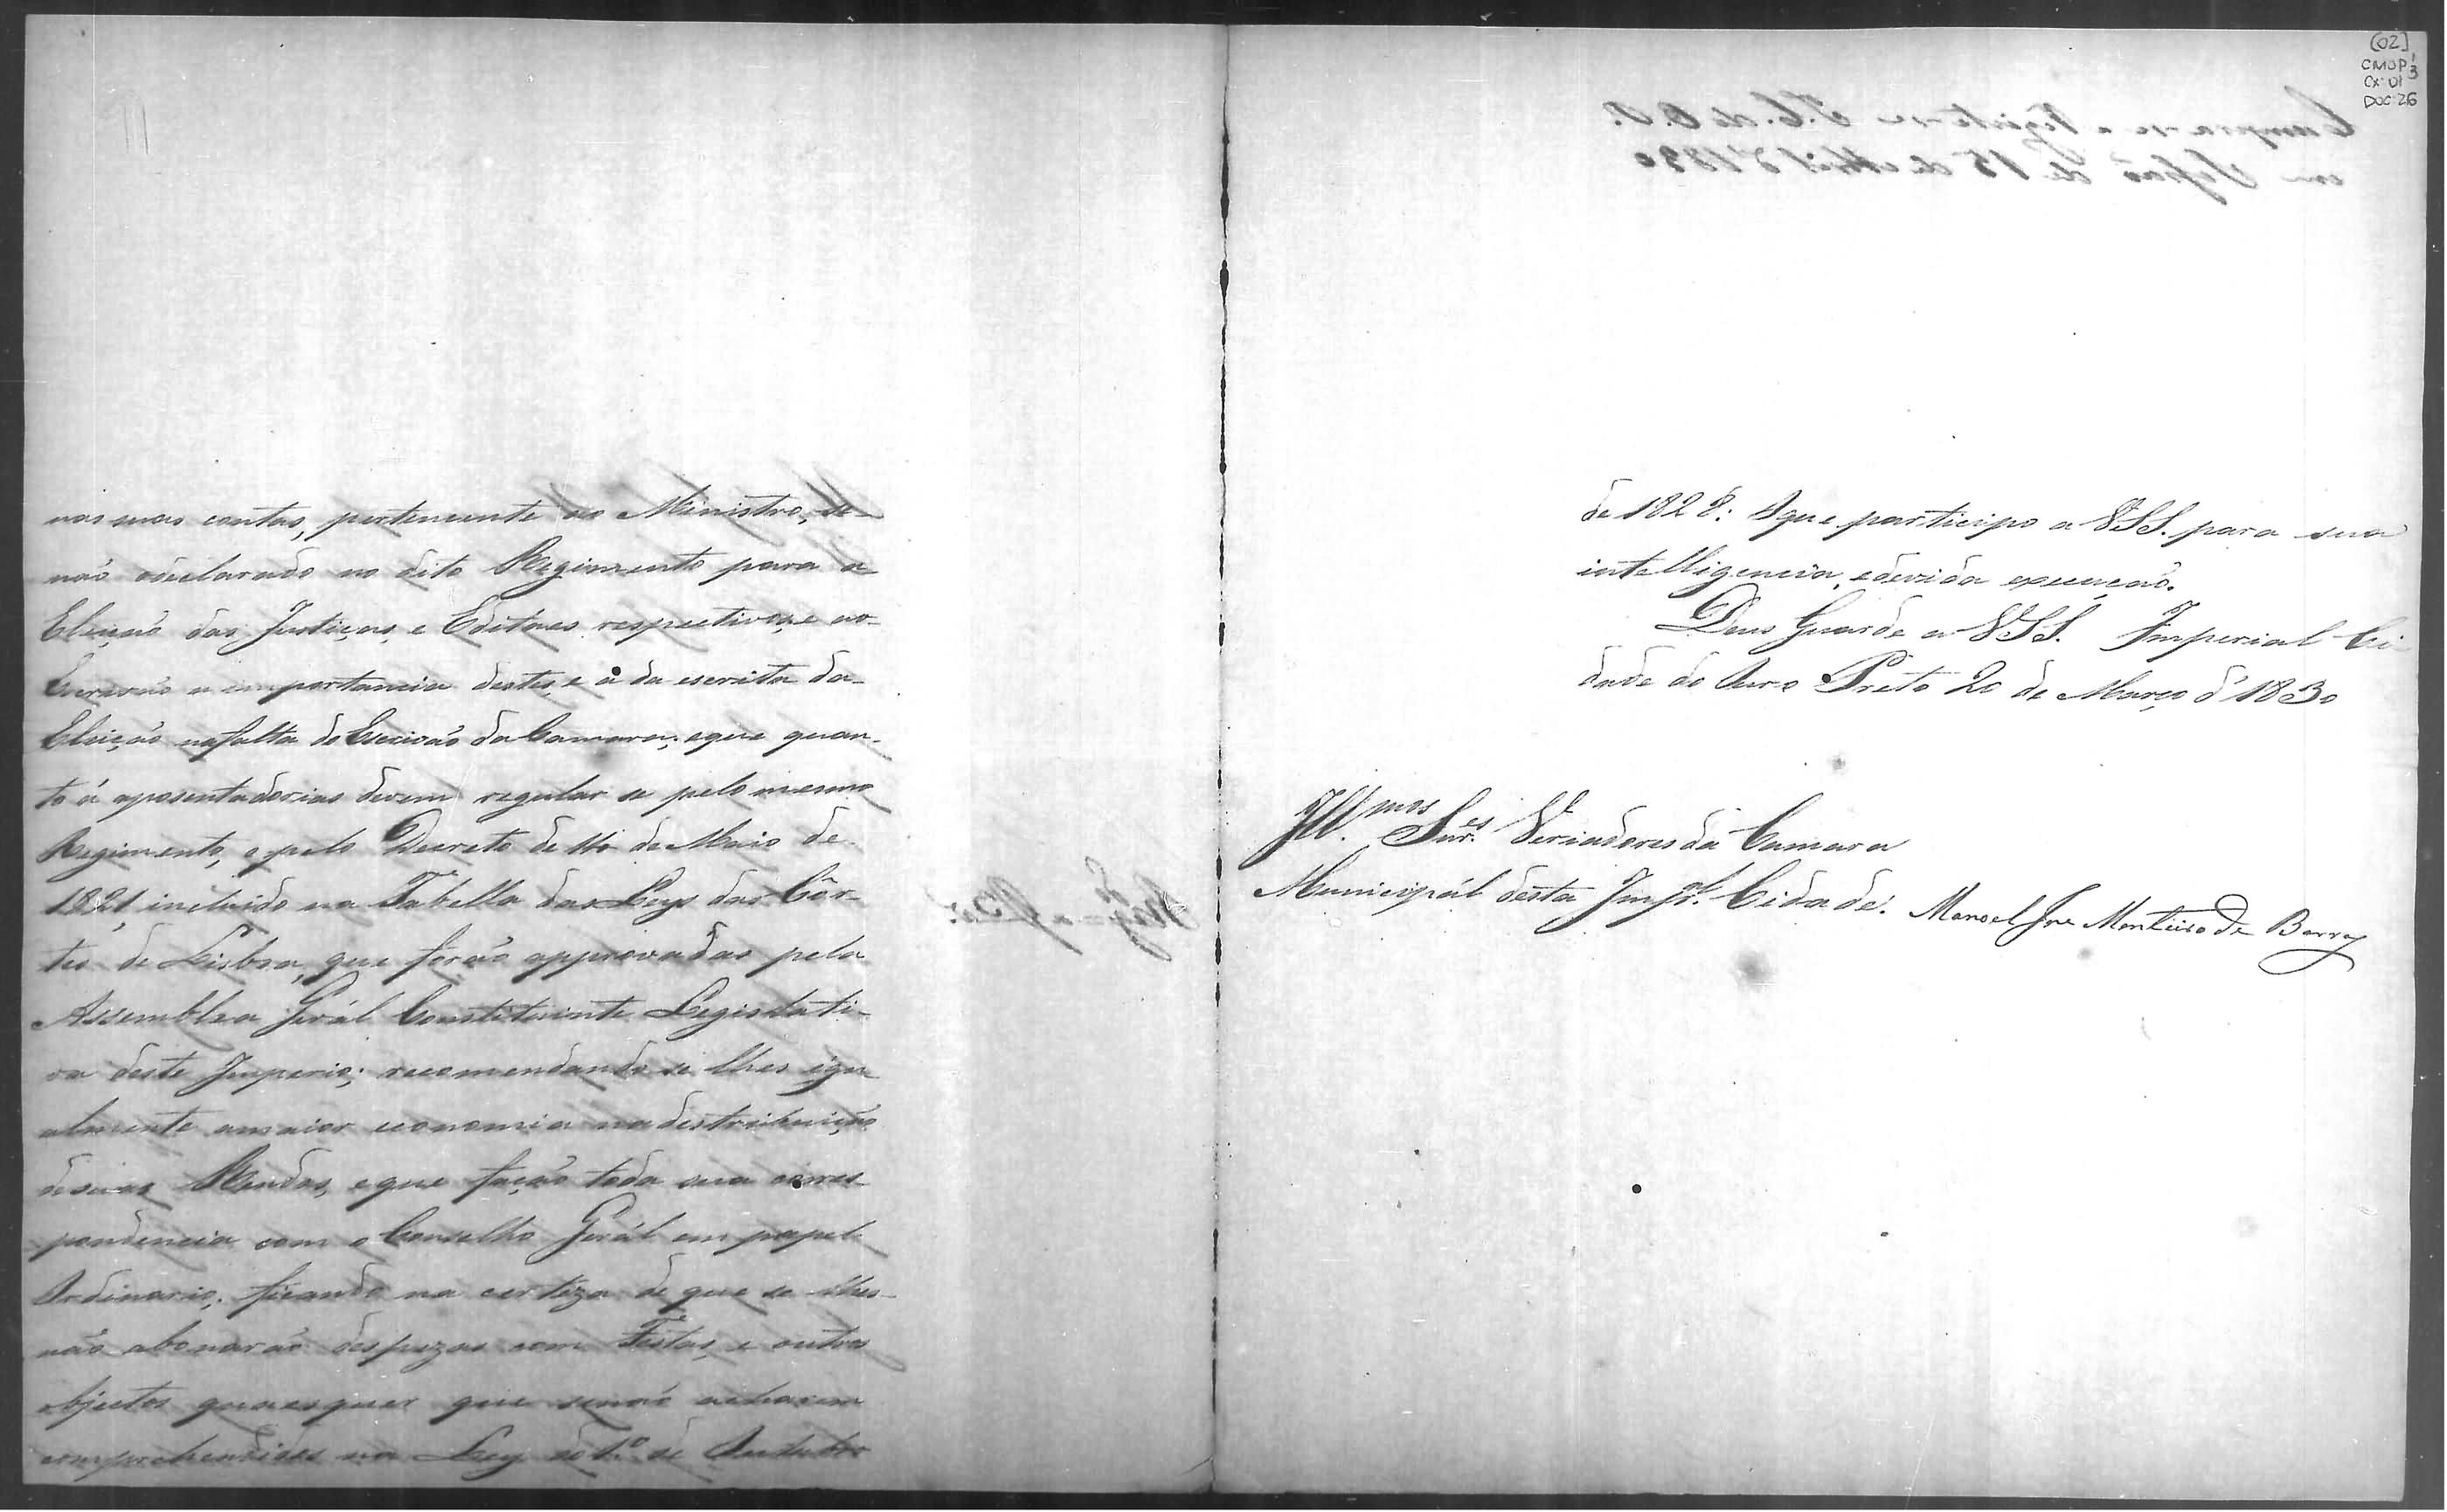 nas suas contas, pertencente ao Ministro, se-
não o declarado no dito Regimento para a
Eleição das Justiças, e Editaes respectivos, e ao
Escrivão a importancia destes, e a da escrita da
Eleição na falta do Escrivão da Camara; e que quan-
to á aposentadorias devem regular se pelo mesmo
Regimento, e pelo Decreto de de Maio de
1821, incluido na Tabella das Leys das Côr-
tes de Lisboa, que forão approvadas pela
Assemblea Gerál Constituinte Legislati-
va deste Imperio; recomendando se lhes igu
almente a maior economia na destribuição
de suas Rendas, e que fação toda sua corres
pondencia com o Conselho Gerál em papel
Ordinario, ficando na certeza de que se lhes
não abonarão despezas com Festas, e outros
objectos quaesquer que se não acharem
comprehendidos na Ley do 1.º de Outubro
(02)
CMOP 13
CX 01
DOC 26
Cumpra-se e Registe-se I. C. do O. P.
em Sessão de 15 de Abril d'1830
de 1828: O que participo a VSS. para sua
intelligencia, e devida execução.
Deus Guarde a VSS. Imperial Ci
dade do Ouro Preto 20 de Março d'1830
Ill.mos Snr.es Veriadores da Camara
Municipál desta Imp.al Cidade.
Manoel Jose Monteiro de Barros